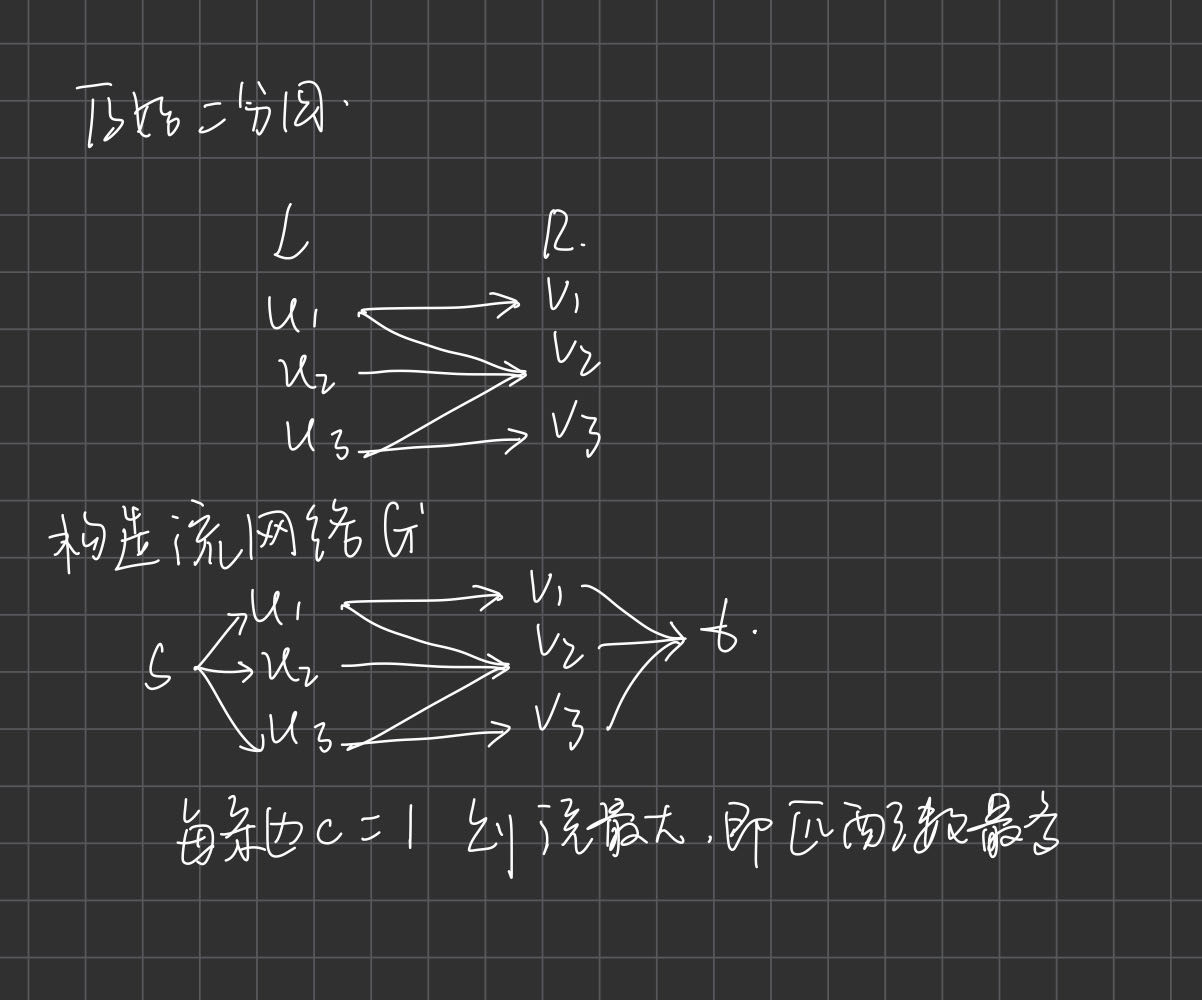 原始二分图.
L R.
u1 v1
u2 v2
u3 v3
构造流网络G'
u1 v1
s u2 v2 t.
u3 v3
每条边c=1 到流最大,即匹配数最多